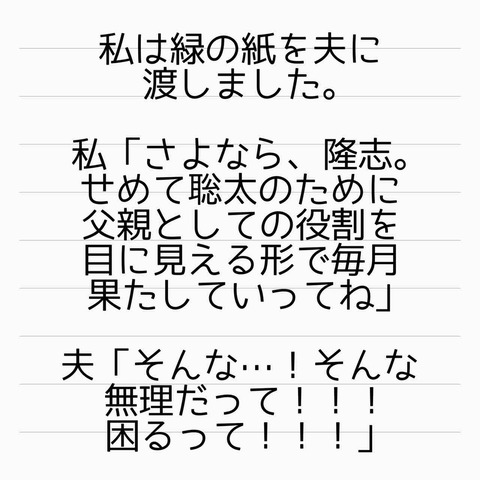 私は緑の紙を夫に
渡しました。
私「さよなら、隆志。
せめて聡太のために
父親としての役割を
目に見える形で毎月
果たしていってね」
夫「そんな…！そんな
無理だって！！！
困るって！！！」